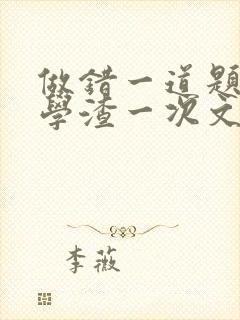 做错一道题
學渣一次文
李薇